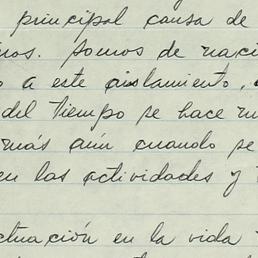 principal causa de
ros. Somos de naci
o a este aislamiento,
del tiempo se hace m
más aún cuando se
en las actividades y
ctuación en la vida